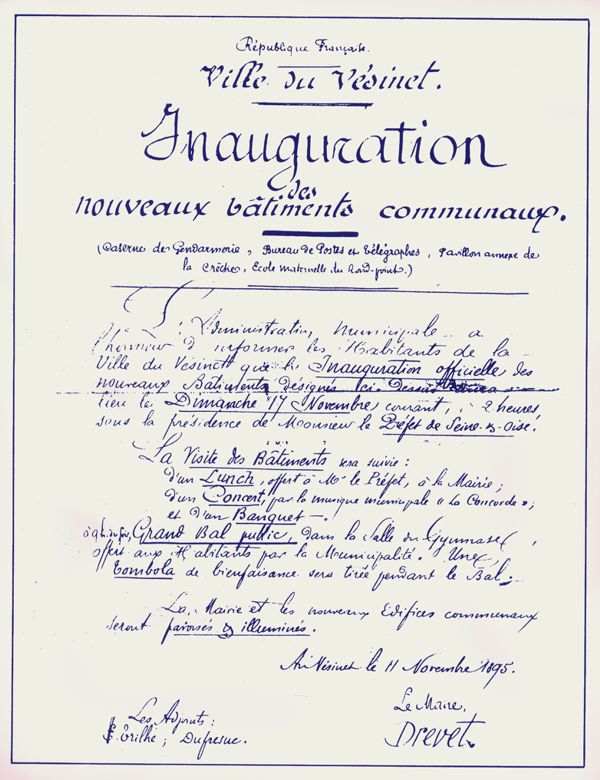 République Française.
Ville du Vésinet.
Inauguration
des
nouveaux bâtiments communaux.
(Caserne de Gendarmerie, Bureau de Postes et Télégraphes, Pavillon annexe de
la Crèche, Ecole maternelle du Rond-point.)
L'Administration municipale a
l'honneur d'informer les Habitants de la
Ville du Vésinet que l' Inauguration officielle des
nouveaux Bâtiments désignés ici dessus aura
lieu le Dimanche 17 Novembre courant, à 2 heures,
sous la présidence de Monsieur le Préfet de Seine-&-Oise.
La Visite des Bâtiments sera suivie:
d'un Lunch, offert à Mr le Préfet, à la Mairie;
d'un Concert, par la musique municipale "La Concorde";
et d'un Banquet.
à 9h. du soir, Grand Bal public, dans la Salle du Gymnase,
offert aux Habitants par la Municipalité. Une
Tombola de bienfaisance sera tirée pendant le Bal.
La Mairie et les nouveaux Edifices communaux
seront pavoisés & illuminés.
Au Vésinet le 11 Novembre 1895.
Les Adjoints:
Trilhe; Dufresne.
Le Maire,
Drevet.